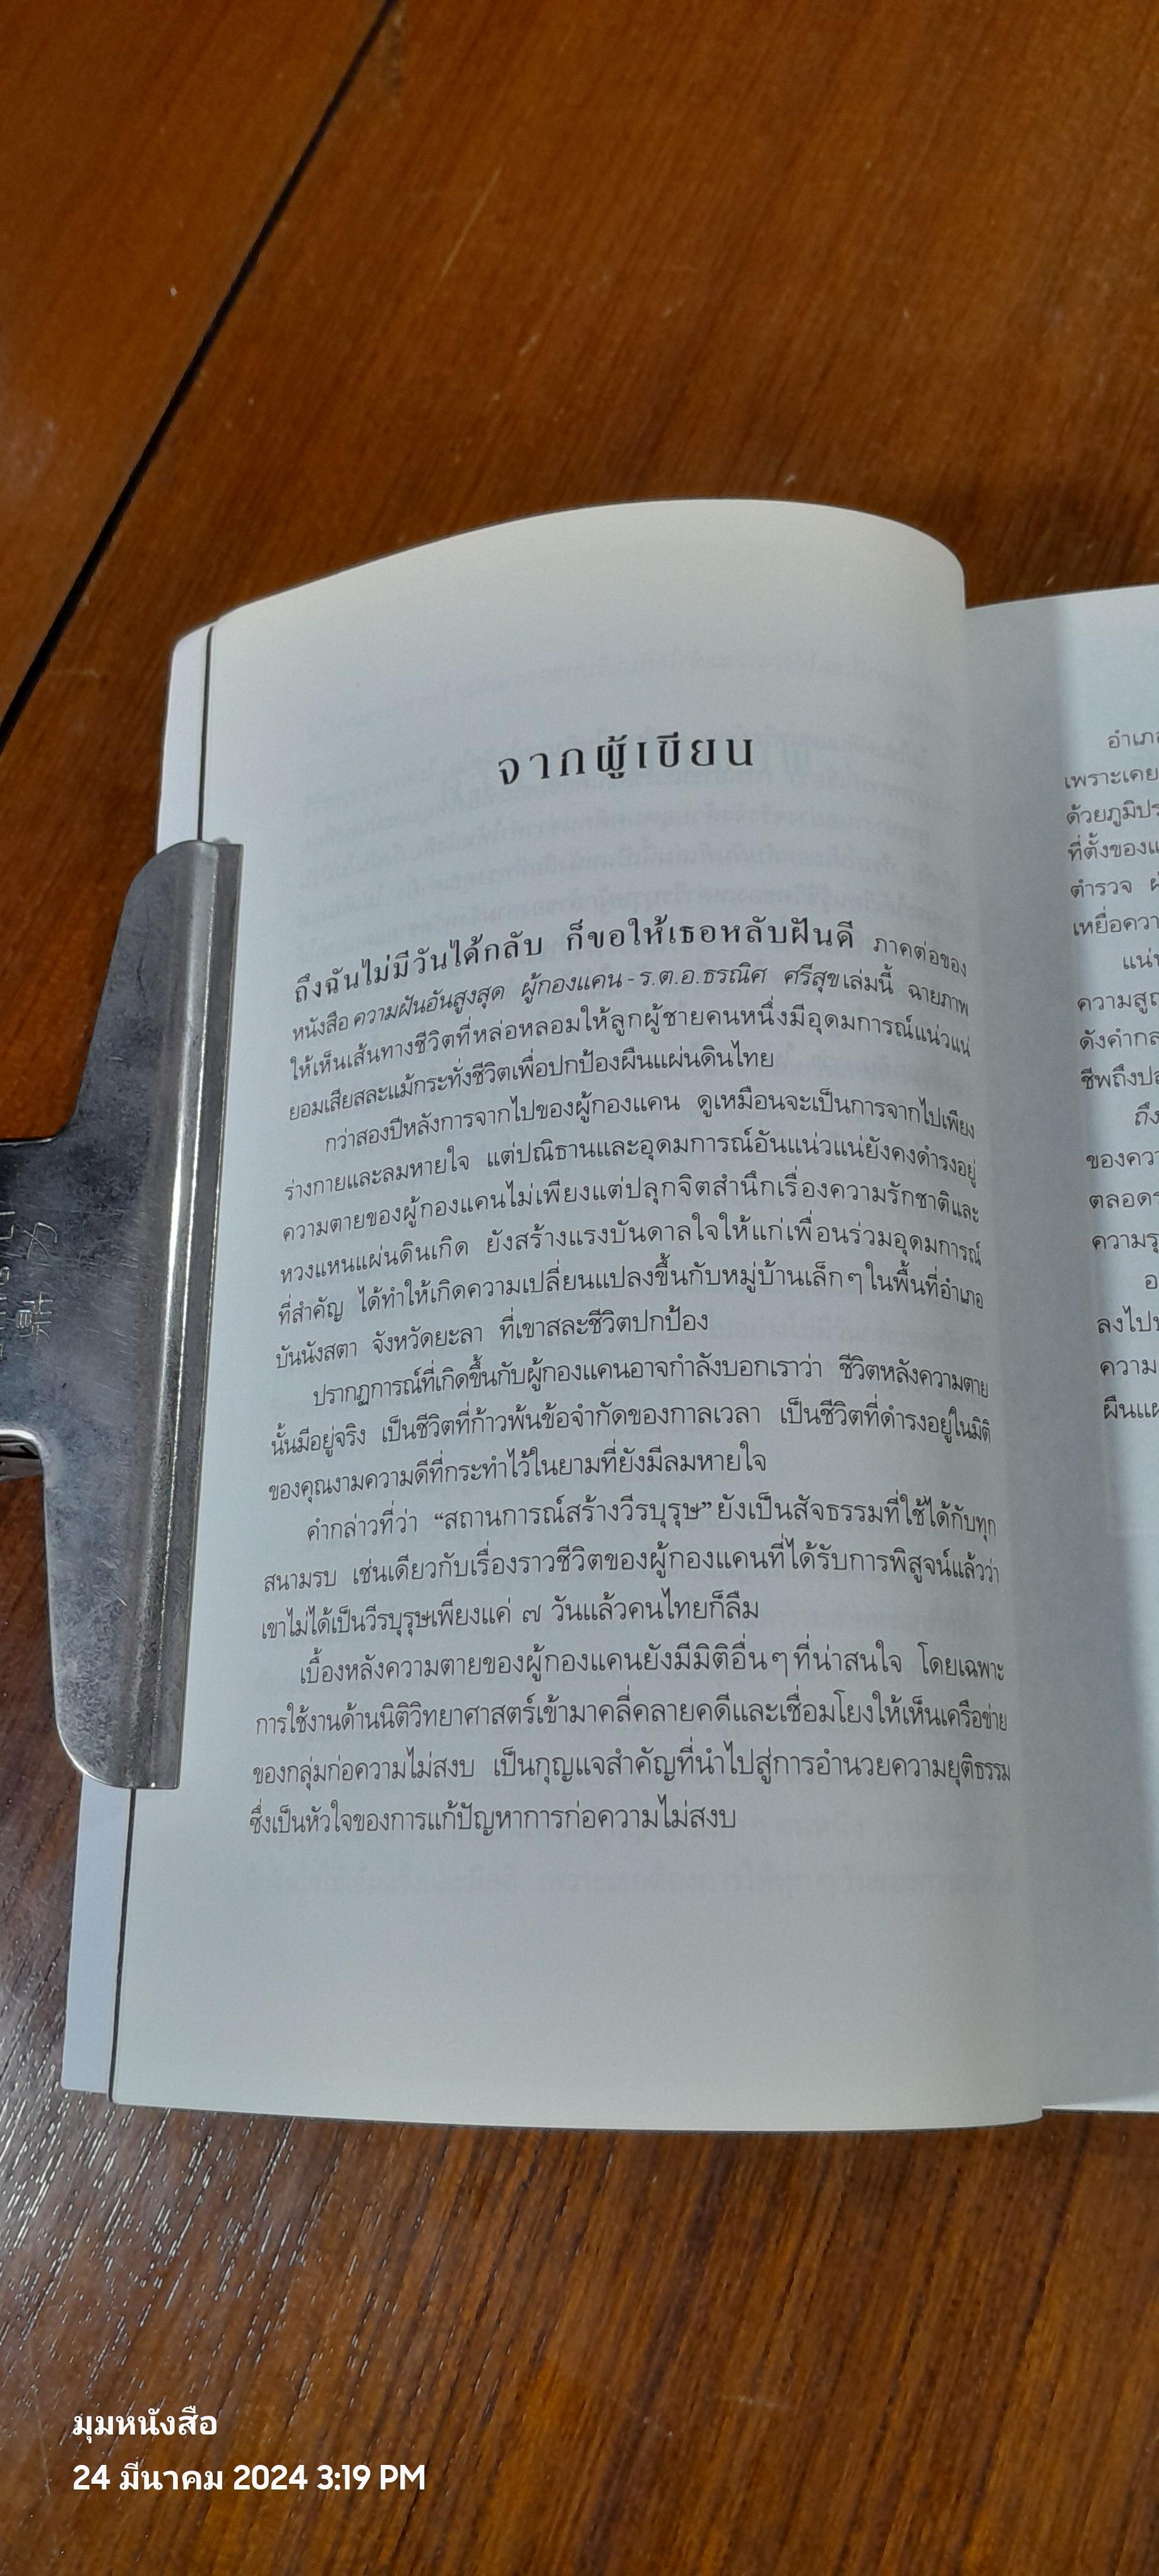 จากผู้เขียน
ถึงฉันไม่มีวันได้กลับ ก็ขอให้เธอหลับฝันดี ภาคต่อของ
หนังสือ ความฝันอันสูงสุด ผู้กองแคน - ร.ต.อ.ธรณิศ ศรีสุข เล่มนี้ ฉายภาพ
ให้เห็นเส้นทางชีวิตที่หล่อหลอมให้ลูกผู้ชายคนหนึ่งมีอุดมการณ์แน่วแน่
ยอมเสียสละแม้กระทั่งชีวิตเพื่อปกป้องผืนแผ่นดินไทย
กว่าสองปีหลังการจากไปของผู้กองแคน ดูเหมือนจะเป็นการจากไปเพียง
ร่างกายและลมหายใจ แต่ปณิธานและอุดมการณ์อันแน่วแน่ยังคงดำรงอยู่
ความตายของผู้กองแคนไม่เพียงแต่ปลุกจิตสำนึกเรื่องความรักชาติและ
หวงแหนแผ่นดินเกิด ยังสร้างแรงบันดาลใจให้แก่เพื่อนร่วมอุดมการณ์
ที่สำคัญ ได้ทำให้เกิดความเปลี่ยนแปลงขึ้นกับหมู่บ้านเล็กๆ ในพื้นที่อำเภอ
บันนังสตา จังหวัดยะลา ที่เขาสละชีวิตปกป้อง
ปรากฏการณ์ที่เกิดขึ้นกับผู้กองแคนอาจกำลังบอกเราว่า ชีวิตหลังความตาย
นั้นมีอยู่จริง เป็นชีวิตที่ก้าวพ้นข้อจำกัดของกาลเวลา เป็นชีวิตที่ดำรงอยู่ในมิติ
ของคุณงามความดีที่กระทำไว้ในยามที่ยังมีลมหายใจ
คำกล่าวที่ว่า “สถานการณ์สร้างวีรบุรุษ” ยังเป็นสัจธรรมที่ใช้ได้กับทุก
สนามรบ เช่นเดียวกับเรื่องราวชีวิตของผู้กองแคนที่ได้รับการพิสูจน์แล้วว่า
เขาไม่ได้เป็นวีรบุรุษเพียงแค่ ๗ วันแล้วคนไทยก็ลืม
เบื้องหลังความตายของผู้กองแคนยังมีมิติอื่นๆ ที่น่าสนใจ โดยเฉพาะ
การใช้งานด้านนิติวิทยาศาสตร์เข้ามาคลี่คลายคดีและเชื่อมโยงให้เห็นเครือข่าย
ของกลุ่มก่อความไม่สงบ เป็นกุญแจสำคัญที่นำไปสู่การอำนวยความยุติธรรม
ซึ่งเป็นหัวใจของการแก้ปัญหาการก่อความไม่สงบ
เพราะเคย
ที่ตั้งของ
ตำรวจ
ถึง
ความ
มุมหนังสือ
24 มีนาคม 2024 3:19 PM